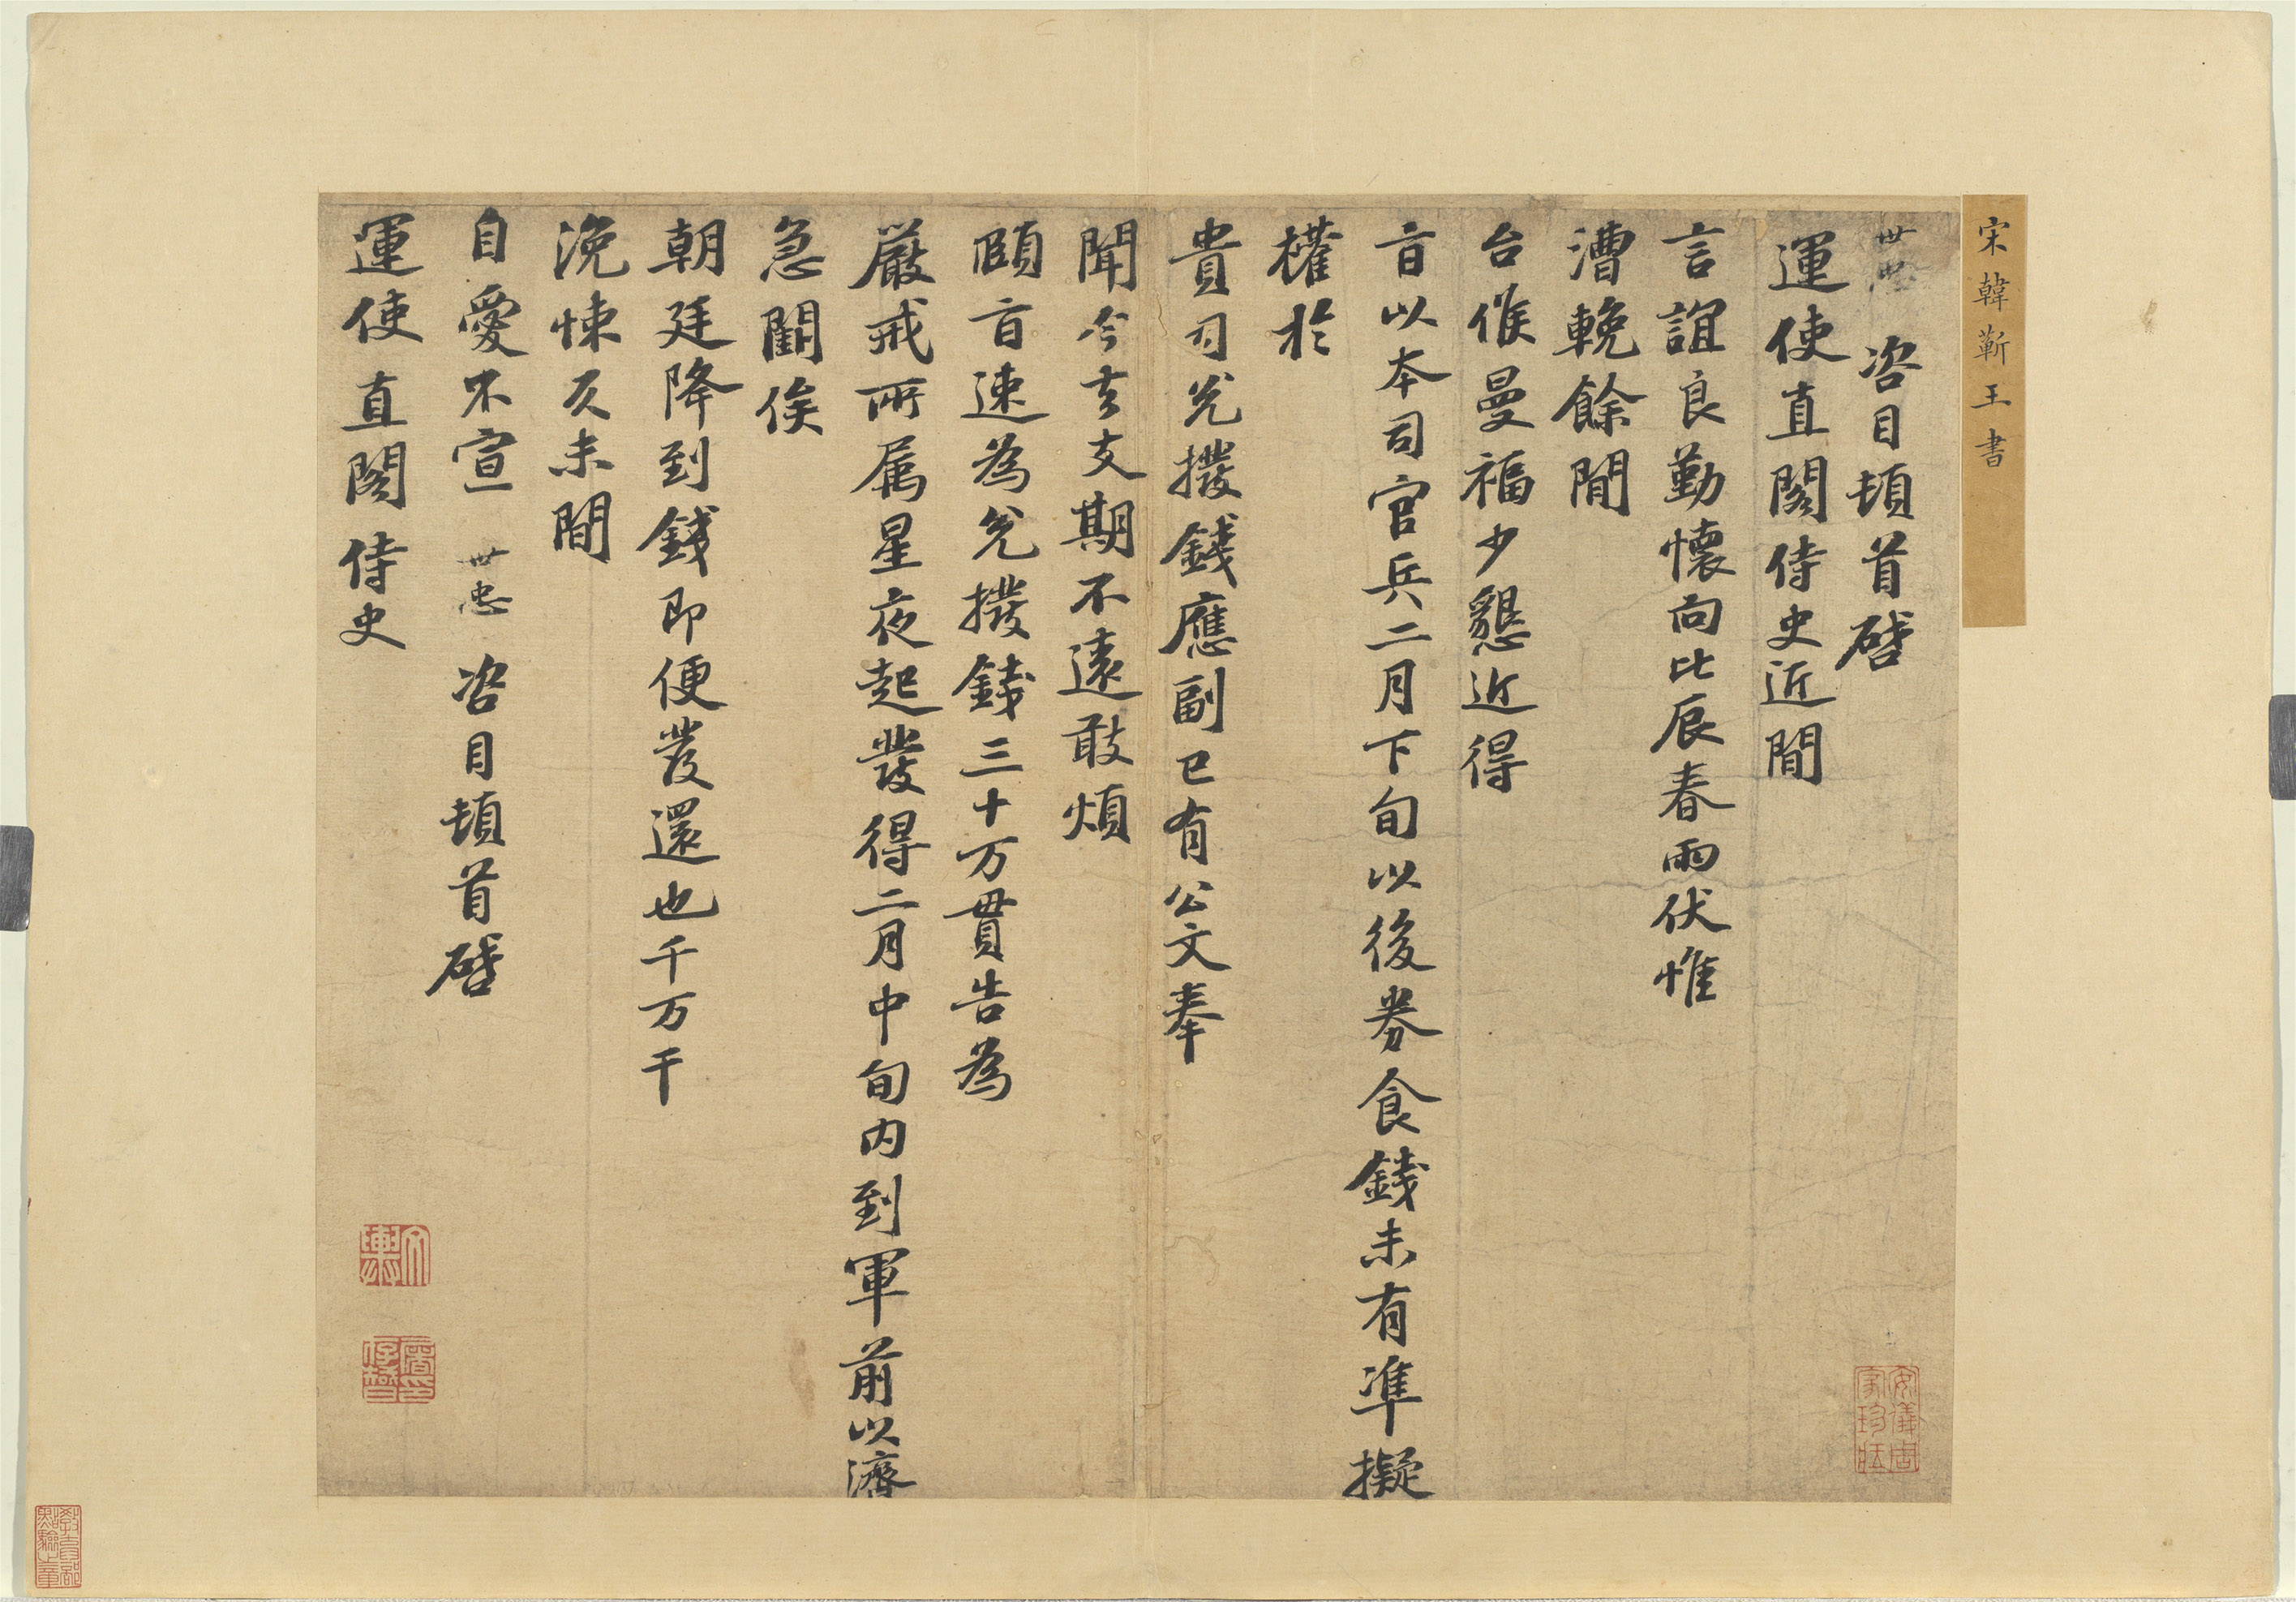 宋韓蘄王書
世忠 咨目頓首啓
運使直閣侍史近聞
言誼良勤懷向比辰春雨伏惟
漕輓餘閒
台候曼福少懇近得
旨以本司官兵二月下旬以後券食錢未有準擬
權於
貴司兌撥錢應副已有公文奉
聞今去支期不遠敢煩
頤旨速為兌撥錢三十万貫告為
嚴戒所属星夜起發得二月中旬内到軍前以濟
急闕俟
朝廷降到錢即便發還也千万千
浼悚久未間
自愛不宣 世忠 咨目頓首啓
運使直閣侍史
安儀周家珍藏
教育部點驗之章